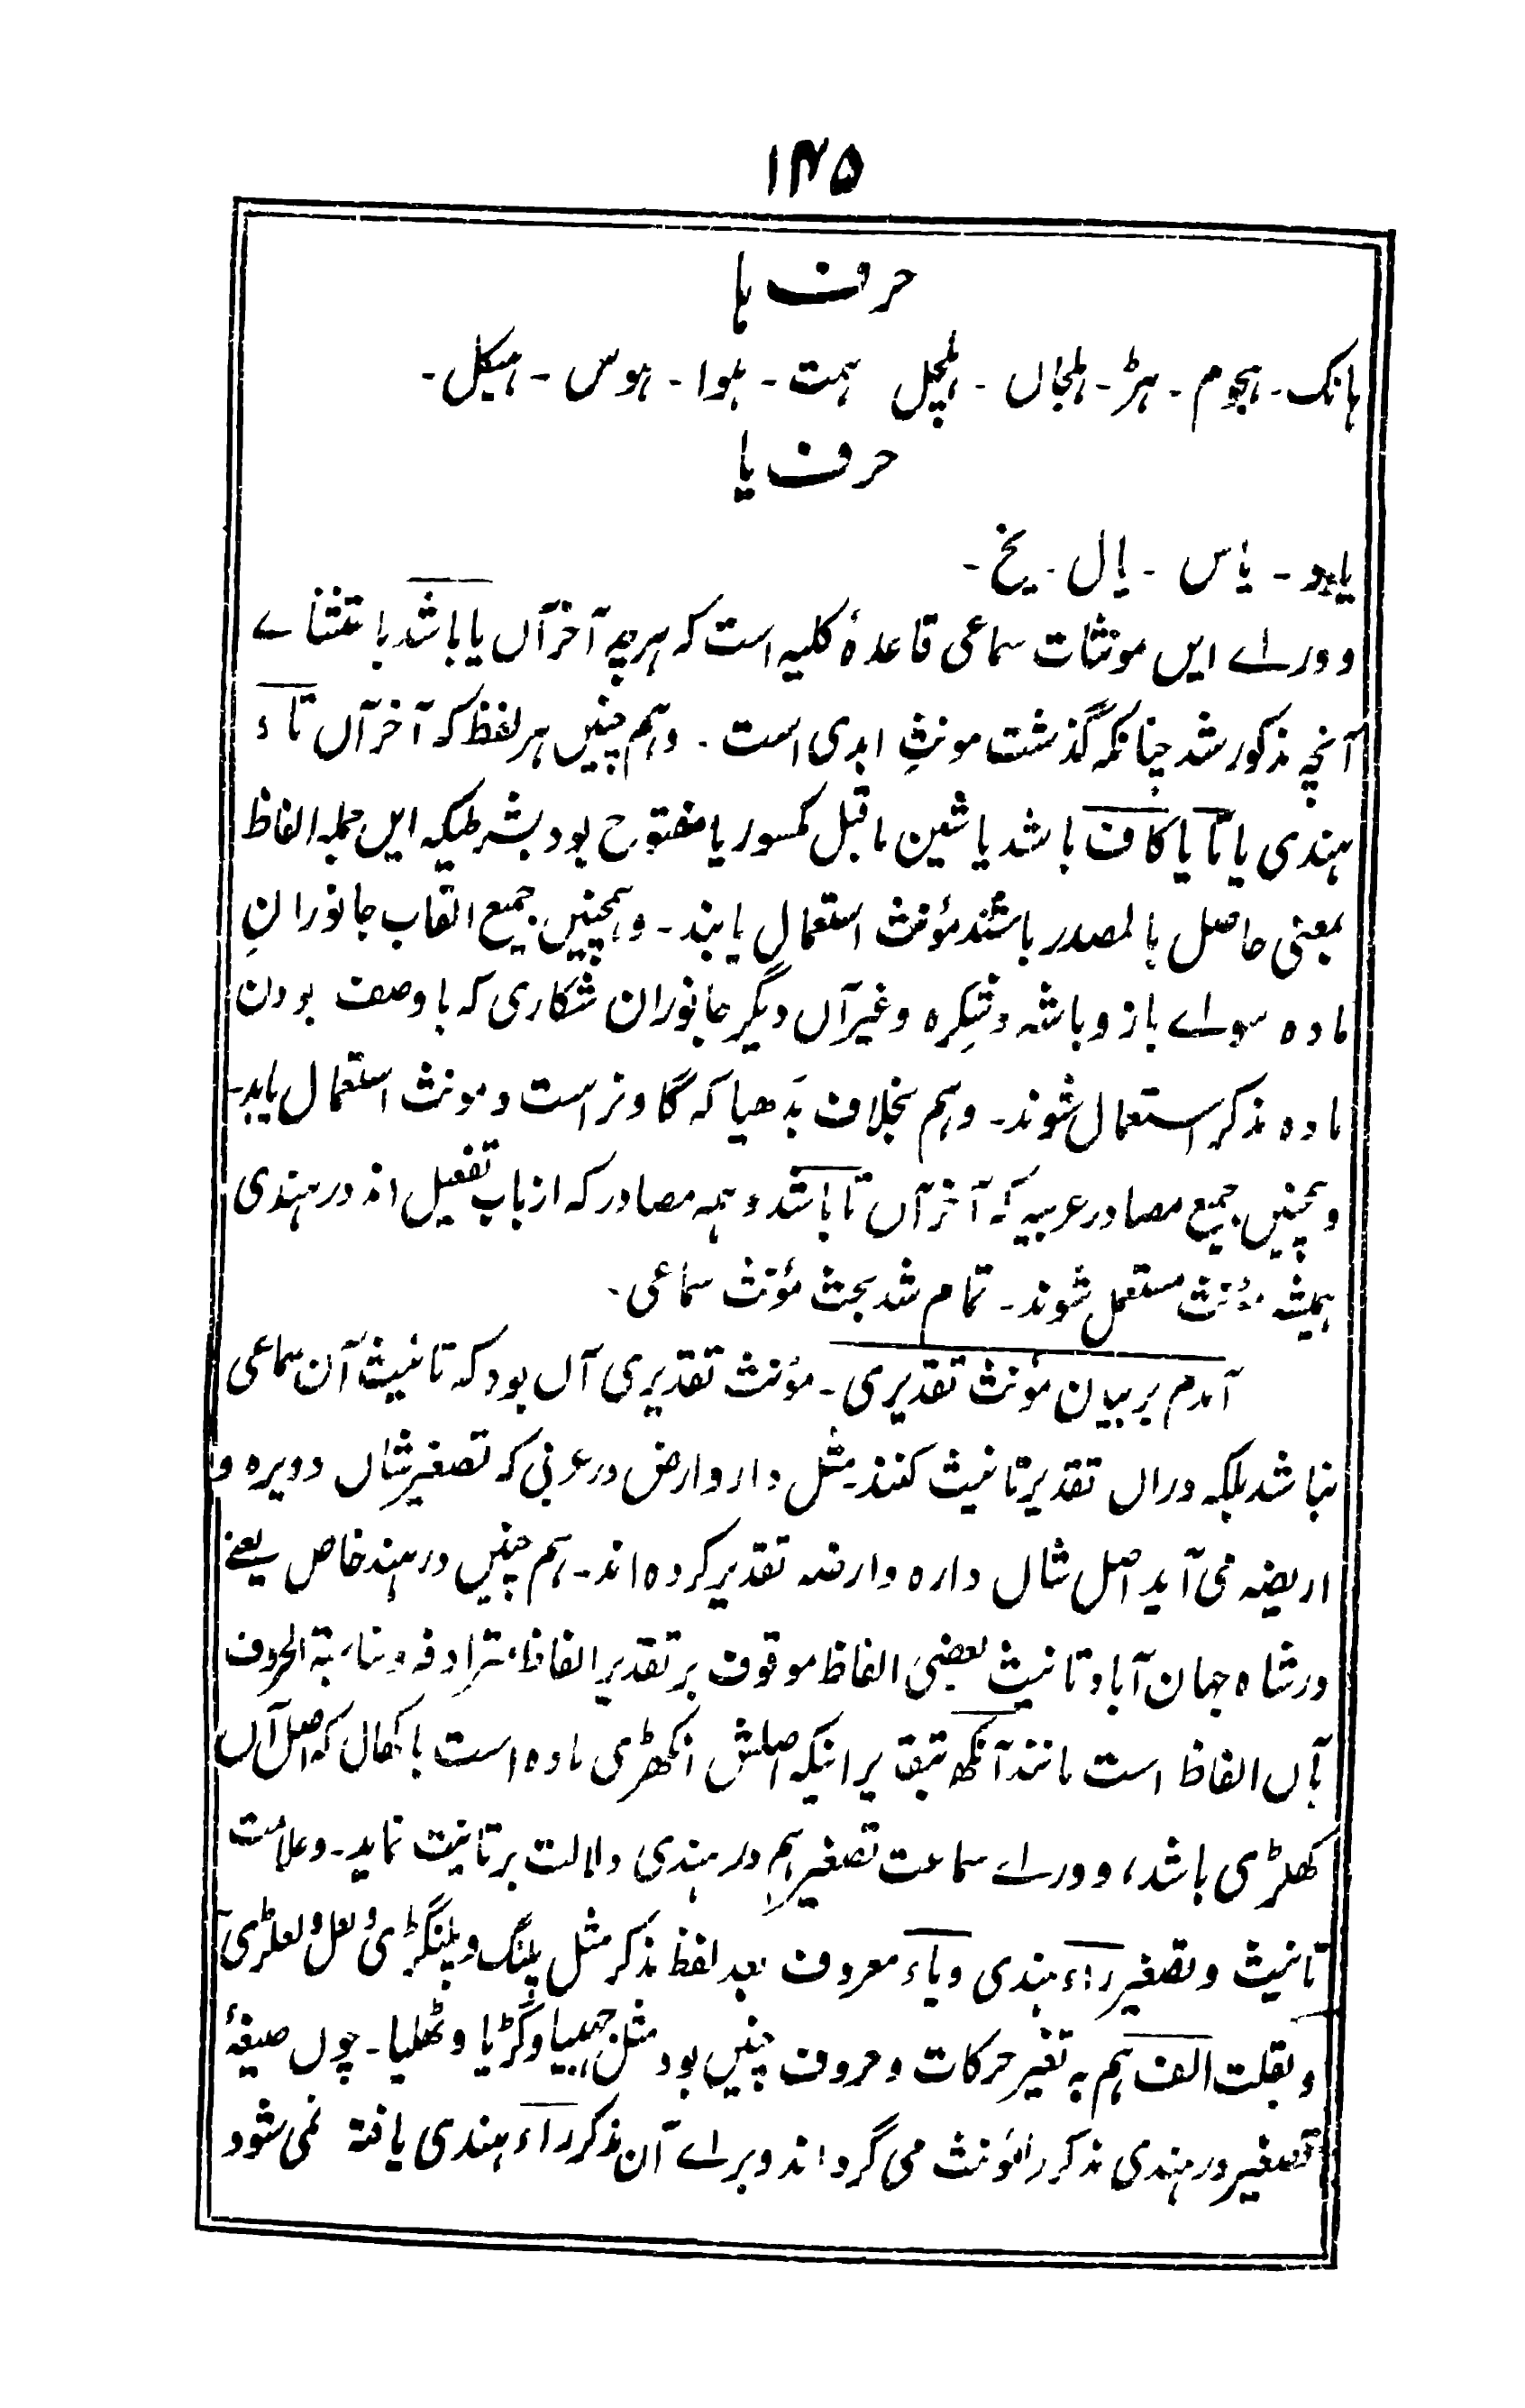 ۱۴۵
حرف ہا
ہانک۔ ہجوم۔ ہڑ۔ ہلجاں۔ ہلچل ہمت۔ ہوا۔ ہوس۔ ہیکل۔
حرف یا
یابو۔ یاس۔ یال۔ یخ۔
و وراے ایں مونثات سماعی قاعدۂ کلیہ است کہ ہرچہ آخر آں یا باشد باستثناے
آنچہ مذکور شد چنانکہ گذشت مونثِ ابدی است۔ وہم چنیں ہر لفظ کہ آخر آں تاء
ہندی یا تا یا کاف باشد یا شین ماقبل کمسور یا مفتوح بود بشرطیکہ ایں جملہ الفاظ
بمعنی حاصل بالمصدر باشند مؤنث استعمال یابند۔ وہمچنیں جمیع القاب جانورانِ
مادہ سواے باز و باشہ و شِکرہ و غیر آں دیگر جانوران شکاری کہ با وصف بودن
مادہ مذکر استعمال شوند۔ وہم بخلاف بَدھیا کہ گاو نر است و مونث استعمال یابد۔
وہمچنیں جمیع مصادر عربیہ کہ آخر آں تا باشد و ہمہ مصادر کہ از باب تفعیل اند در ہندی
ہمیشہ مؤنث مستعمل شوند۔ تمام شد بحث مؤنث سماعی۔
آمدم بر بیان مؤنث تقدیری۔ مؤنث تقدیری آں بود کہ تانیث آن سماعی
نباشد بلکہ دراں تقدیر تانیث کنند۔ مثل دار و ارض در عربی کہ تصغیر شاں دویرہ و
اریضہ می آید اصل شاں دارہ و ارضہ تقدیر کردہ اند۔ ہم چنیں در ہند خاص یعنے
در شاہ جہان آباد تانیث بعضی الفاظ موقوف بر تقدیر الفاظ مترادفہ و مناسبۃ الحروف
بآں الفاظ است مانند آنکھ بتقدیر اینکہ اصلش انکھڑی مادہ است با کھال کہ اصل آں
کھلڑی باشد، و وراے سماعت تصغیر ہم در ہندی دلالت بر تانیث نماید۔ و علامت
تانیث و تصغیر راء ہندی و یاء معروف بعد لفظ مذکر مثل پلنگ و پلنگڑی و لعل و لعلڑی
و بقلت الف ہم بہ تغیر حرکات و حروف چنیں بود مثل چبیا و گڑیا و ٹھلیا۔ چوں صیغۂ
تصغیر در ہندی مذکر را مؤنث می گرداند و براے آن مذکر راء ہندی یافتہ نمی شود